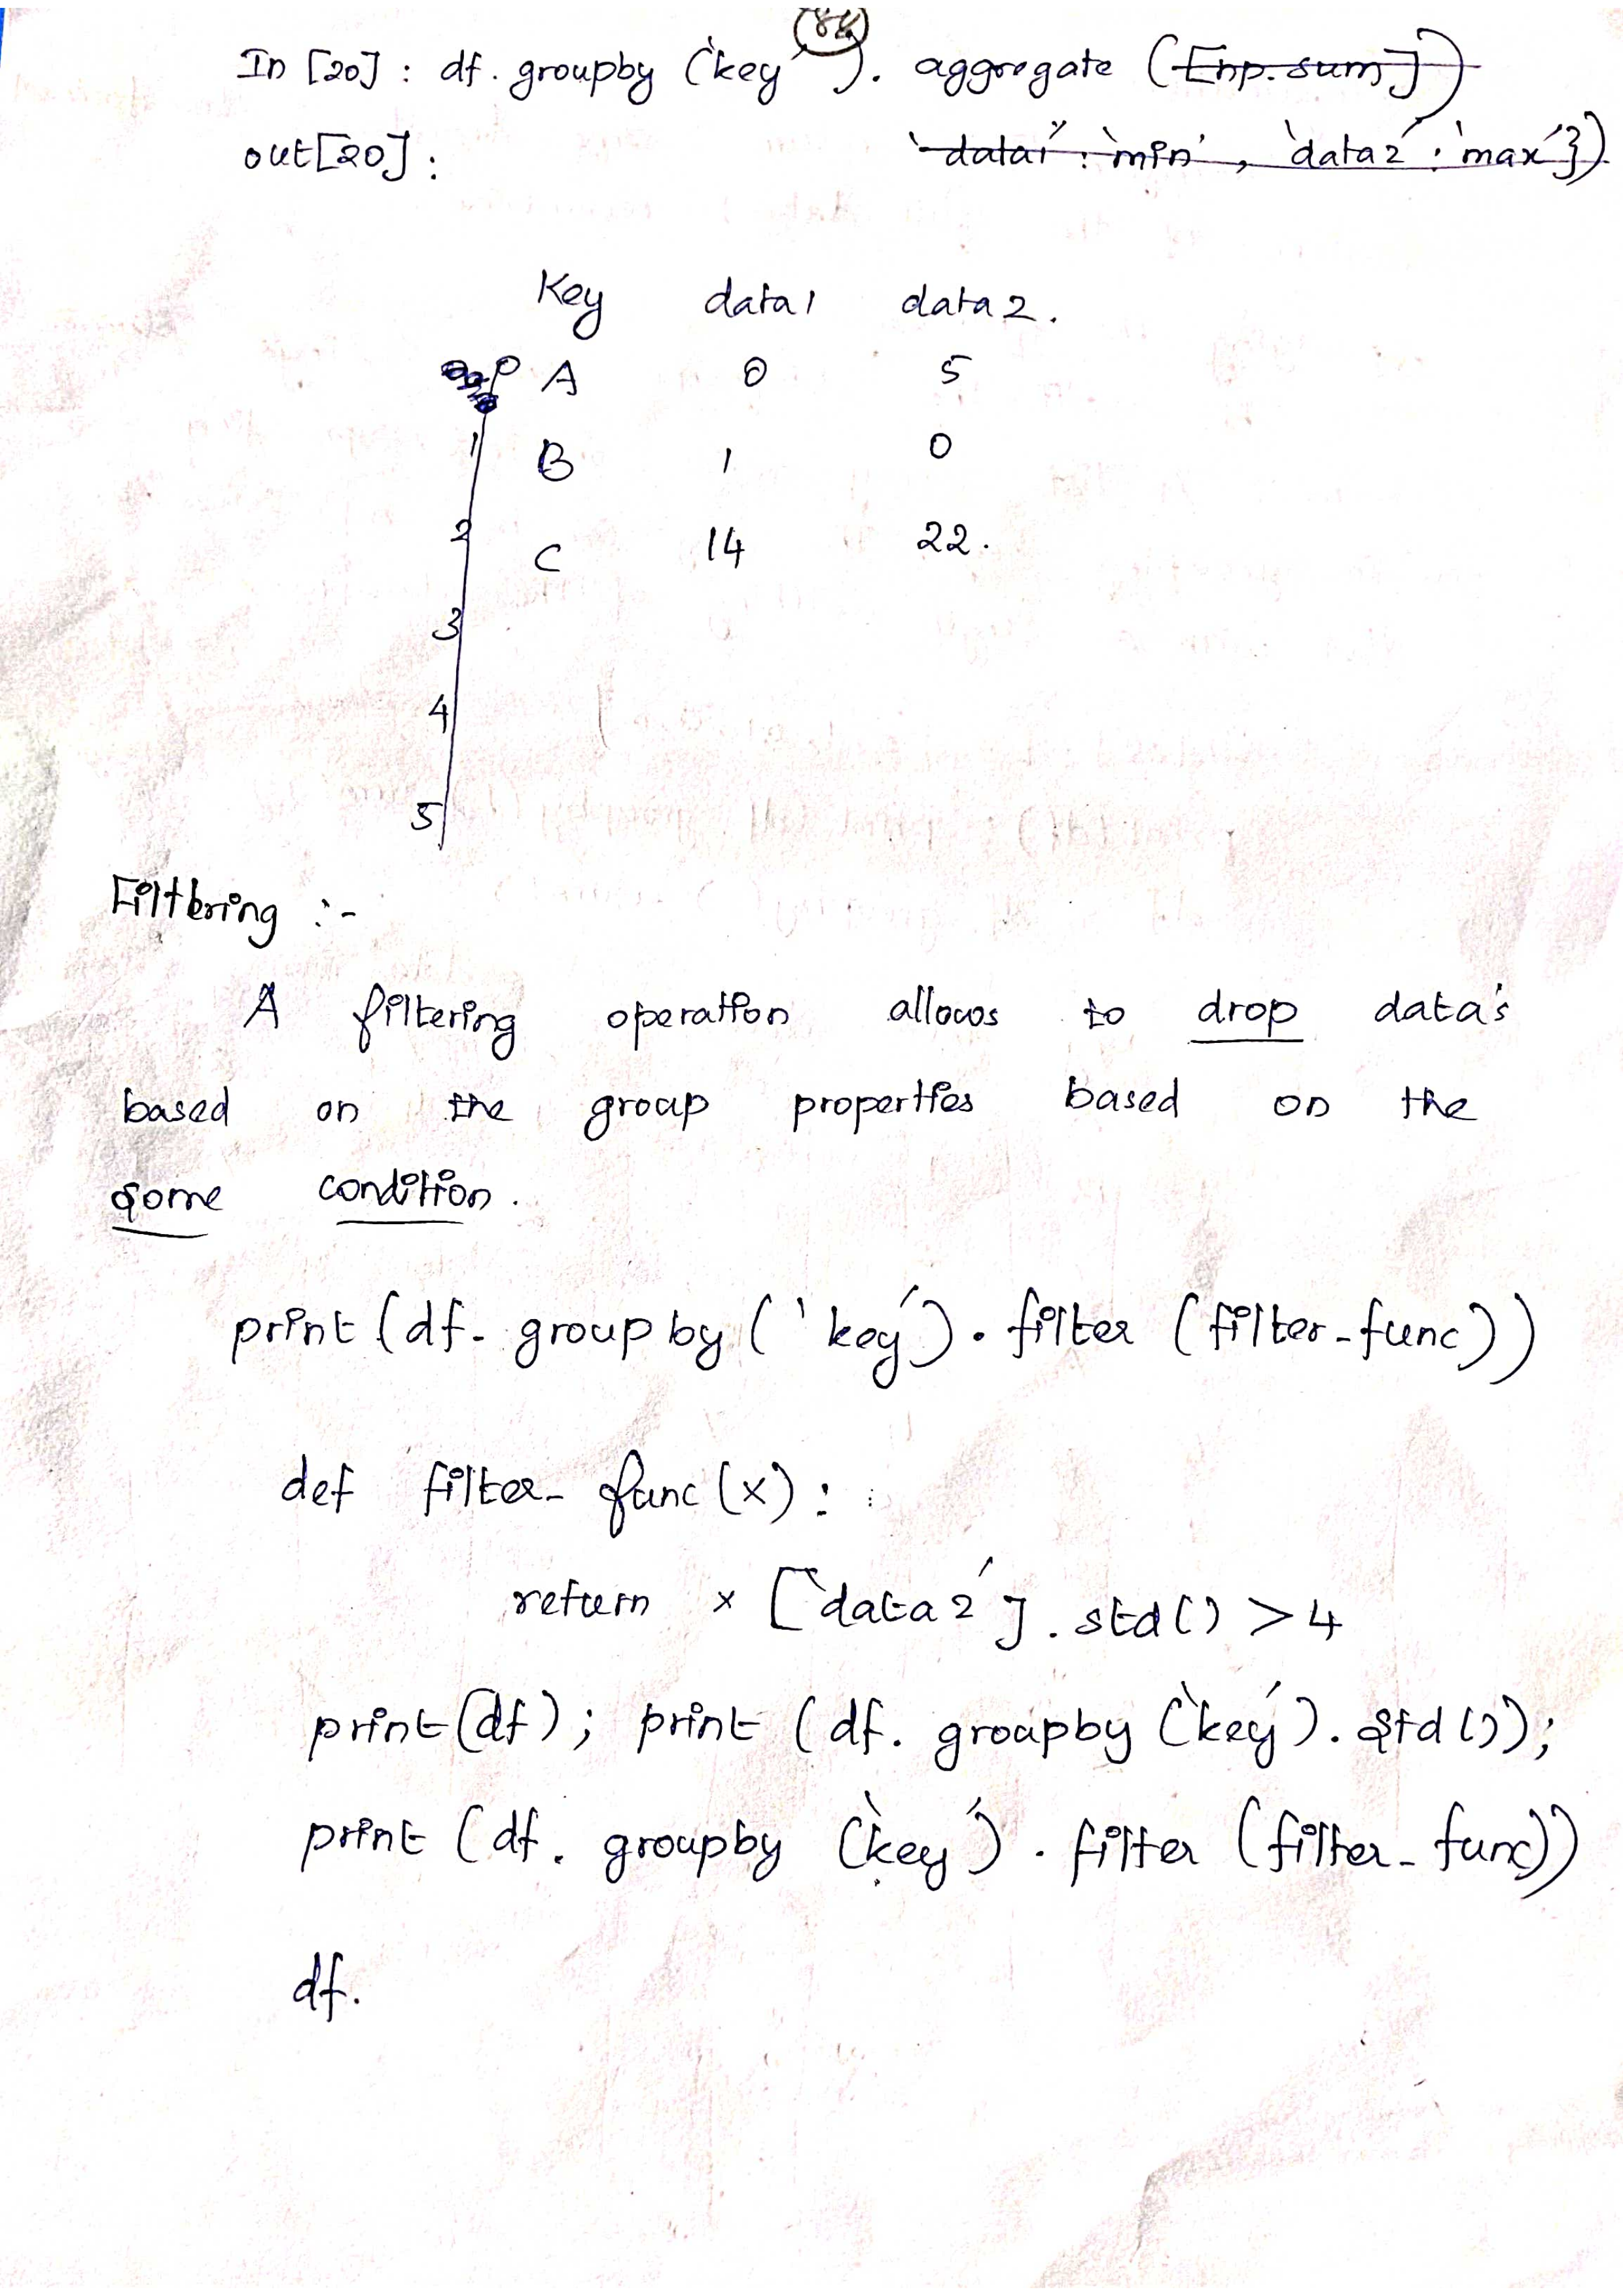 84
In [20] : df. groupby ('key'). aggregate ([np.sum])
out[20] : 'data1' : 'min', 'data2' : 'max'})
Key data1 data2.
0 A 0 5
1 B 1 0
2 C 14 22.
3
4
5
Filtering :-
A filtering operation allows to drop data's
based on the group properties based on the
some condition.
print (df. groupby ('key'). filter (filter_func))
def filter_func (x) :
return x ['data2']. std() > 4
print (df) ; print (df. groupby ('key'). std ());
print (df. groupby ('key'). filter (filter_func))
df.